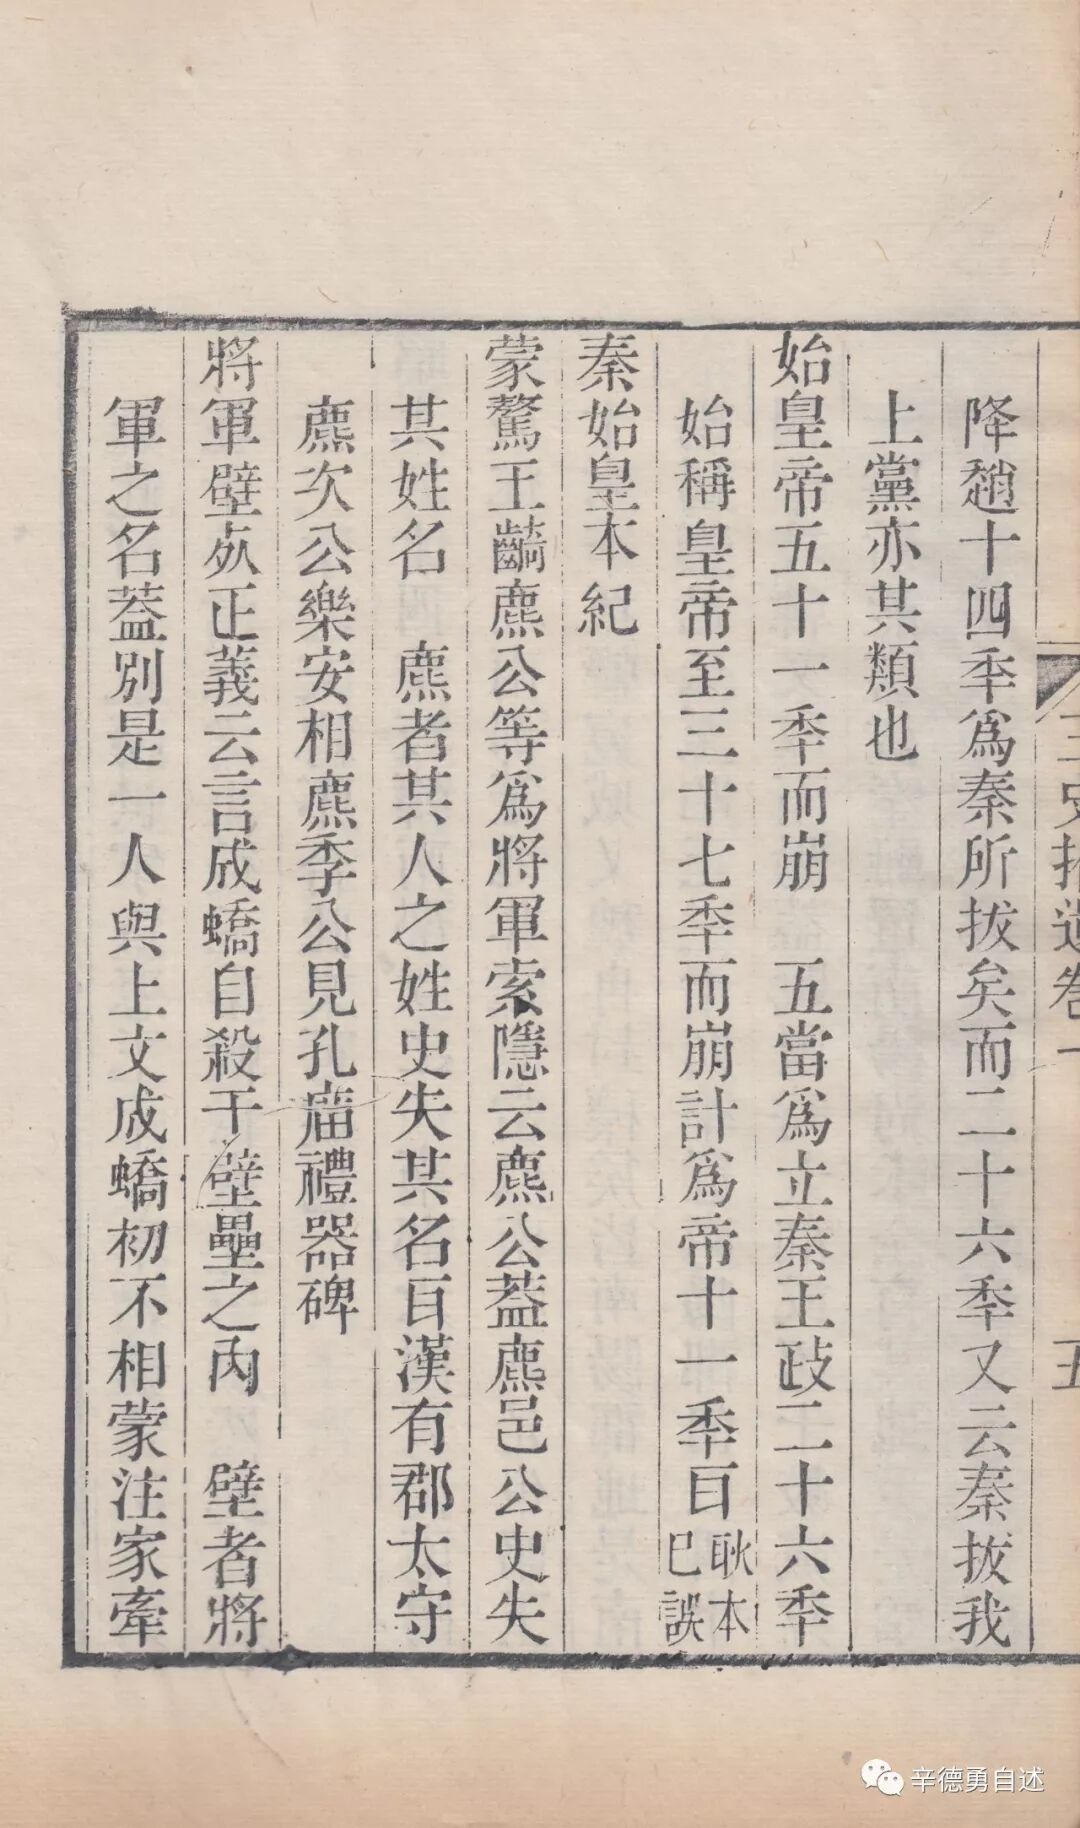 降趙十四秊爲秦所拔矣而二十六秊又云秦拔我
上黨亦其類也
始皇帝五十一秊而崩　五當爲立秦王政二十六秊
始稱皇帝至三十七秊而崩計爲帝十一秊百耿本已誤
秦始皇本紀
蒙驁王齮麃公等爲將軍索隱云麃公蓋麃邑公史失
其姓名　麃者其人之姓史失其名百漢有郡太守
麃次公樂安相麃季公見孔庿禮器碑
將軍壁死正義云言成蟜自殺于壁壘之內　壁者將
軍之名蓋別是一人與上文成蟜初不相蒙注家牽
三史拾遺卷一
五
辛德勇自述